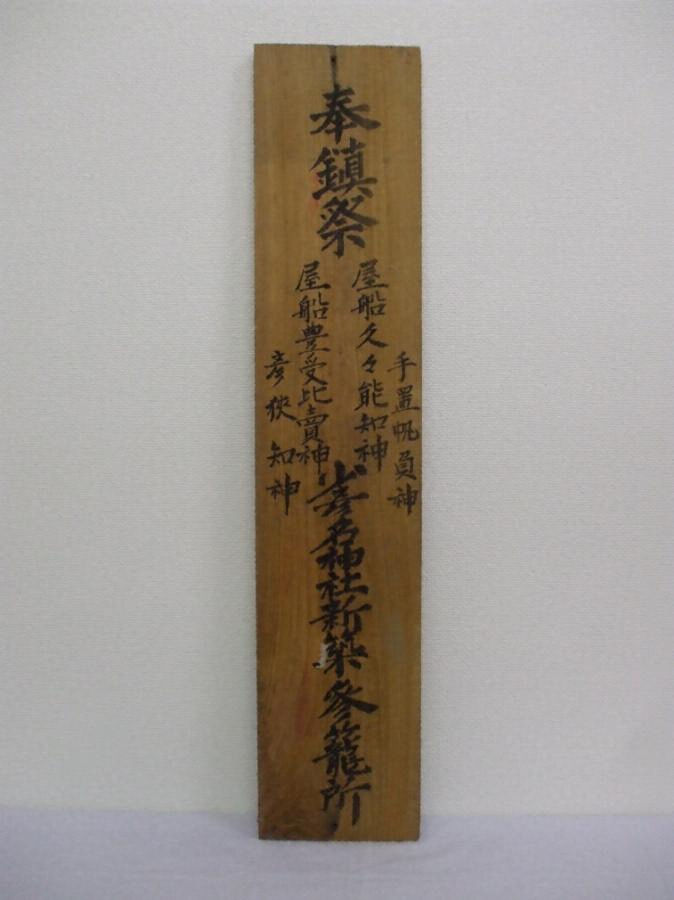 奉鎮祭
手置帆負神
屋船久々能知神
屋船豊受比賣神
彦狹知神
少彦名神社新築参籠所